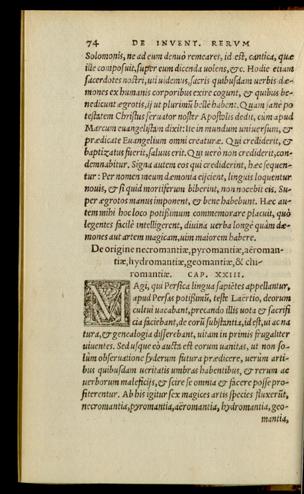 74 DE INVENT. RERVM
Solomonis, ne ad eum denuò remearet, id est, cantica, quæ
ille composuit, super eum dicenda uolens, &c. Hodie etiam
sacerdotes nostri, uti uidemus, sacris quibusdam uerbis dæ-
mones ex humanis corporibus exire cogunt, & quibus be-
nedicunt ægrotis, ij ut plurimũ bellè habent. Quam sanè po
testatem Christus seruator noster Apostolis dedit, cùm apud
Marcum euangelistam dixit: Ite in mundum uniuersum, &
prædicate Euangelium omni creaturæ. Qui crediderit, &
baptizatus fuerit, saluus erit. Qui uerò non crediderit, con-
demnabitur. Signa autem eos qui crediderint, hæc sequen-
tur: Per nomen meum dæmonia eijcient, linguis loquentur
nouis, & si quid mortiferum biberint, non nocebit eis. Su-
per ægrotos manus imponent, & bene habebunt. Hæc au-
tem mihi hoc loco potißimum commemorare placuit, quò
legentes facilè intelligerent, diuina uerba longè quàm dæ-
mones aut artem magicam, uim maiorem habere.
De origine necromantiæ, pyromantiæ, aëroman-
tiæ, hydromantiæ, geomantiæ, & chi-
romantiæ. CAP. XXIII.
MAgi, qui Persica lingua sapiẽtes appellantur,
apud Persas potißimũ, teste Laërtio, deorum
cultui uacabant, precando illis uota & sacrifi
cia faciebant, de eorũ substantia, id est, ui ac na
tura, & genealogia disserebant, uitam in primis frugaliter
uiuentes. Sed usque eò aucta est eorum uanitas, ut non so-
lùm obseruatione syderum futura prædicere, uerùm arti-
bus quibusdam ueritatis umbras habentibus, & rerum ac
uerborum maleficijs, & scire se omnia & facere posse pro-
fiterentur. Ab his igitur sex magices artis species fluxerũt,
necromantia, pyromantia, aëromantia, hydromantia, geo-
mantia,